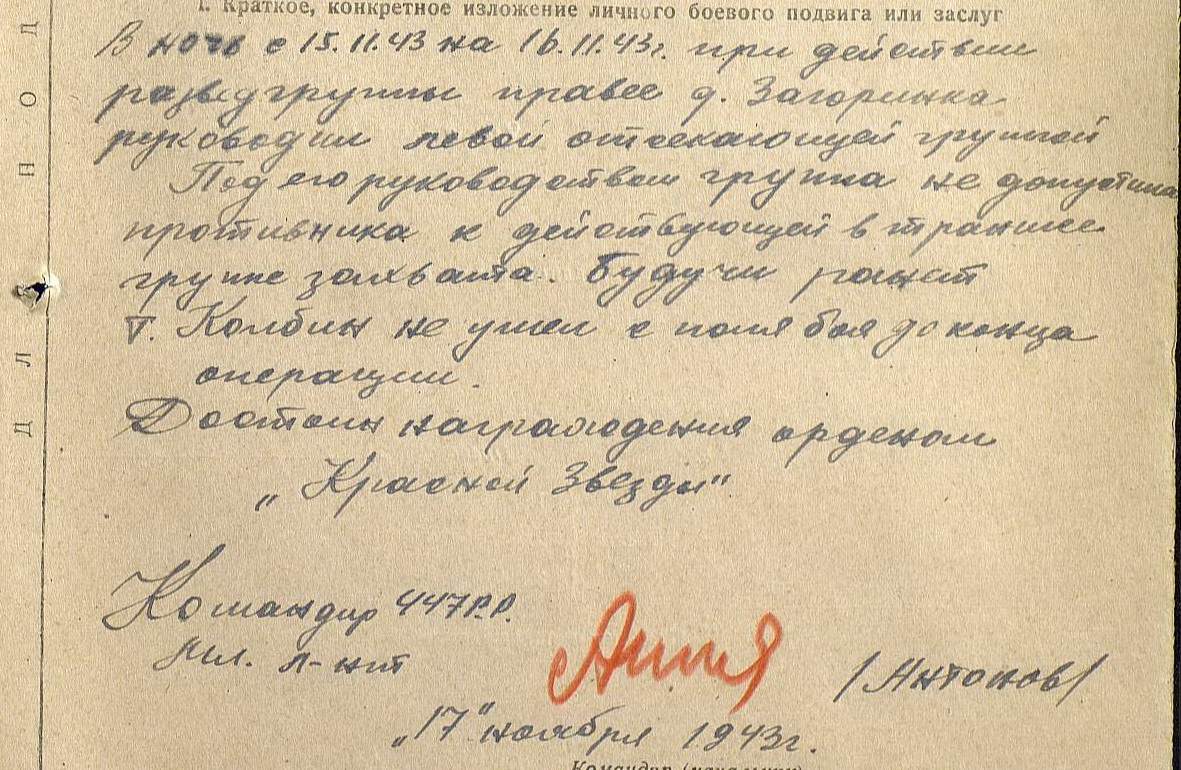 I. Краткое, конкретное изложение личного боевого подвига или заслуг
В ночь с 15.11.43 на 16.11.43г. при действии
разведгруппы правее д. Загоринка
руководил левой отсекающей группой
Под его руководством группа не допустила
противника к действующей в траншее
группе захвата. Будучи ранен
т. Колбин не ушел с поля боя до конца
операции.
Достоин награждения орденом
„Красной Звезды"
Командир 447 Р.Р.
мл. л-нт
/Антонов/
„17" ноября 1943г.
Командир (начальник)
П О Н
Л Д